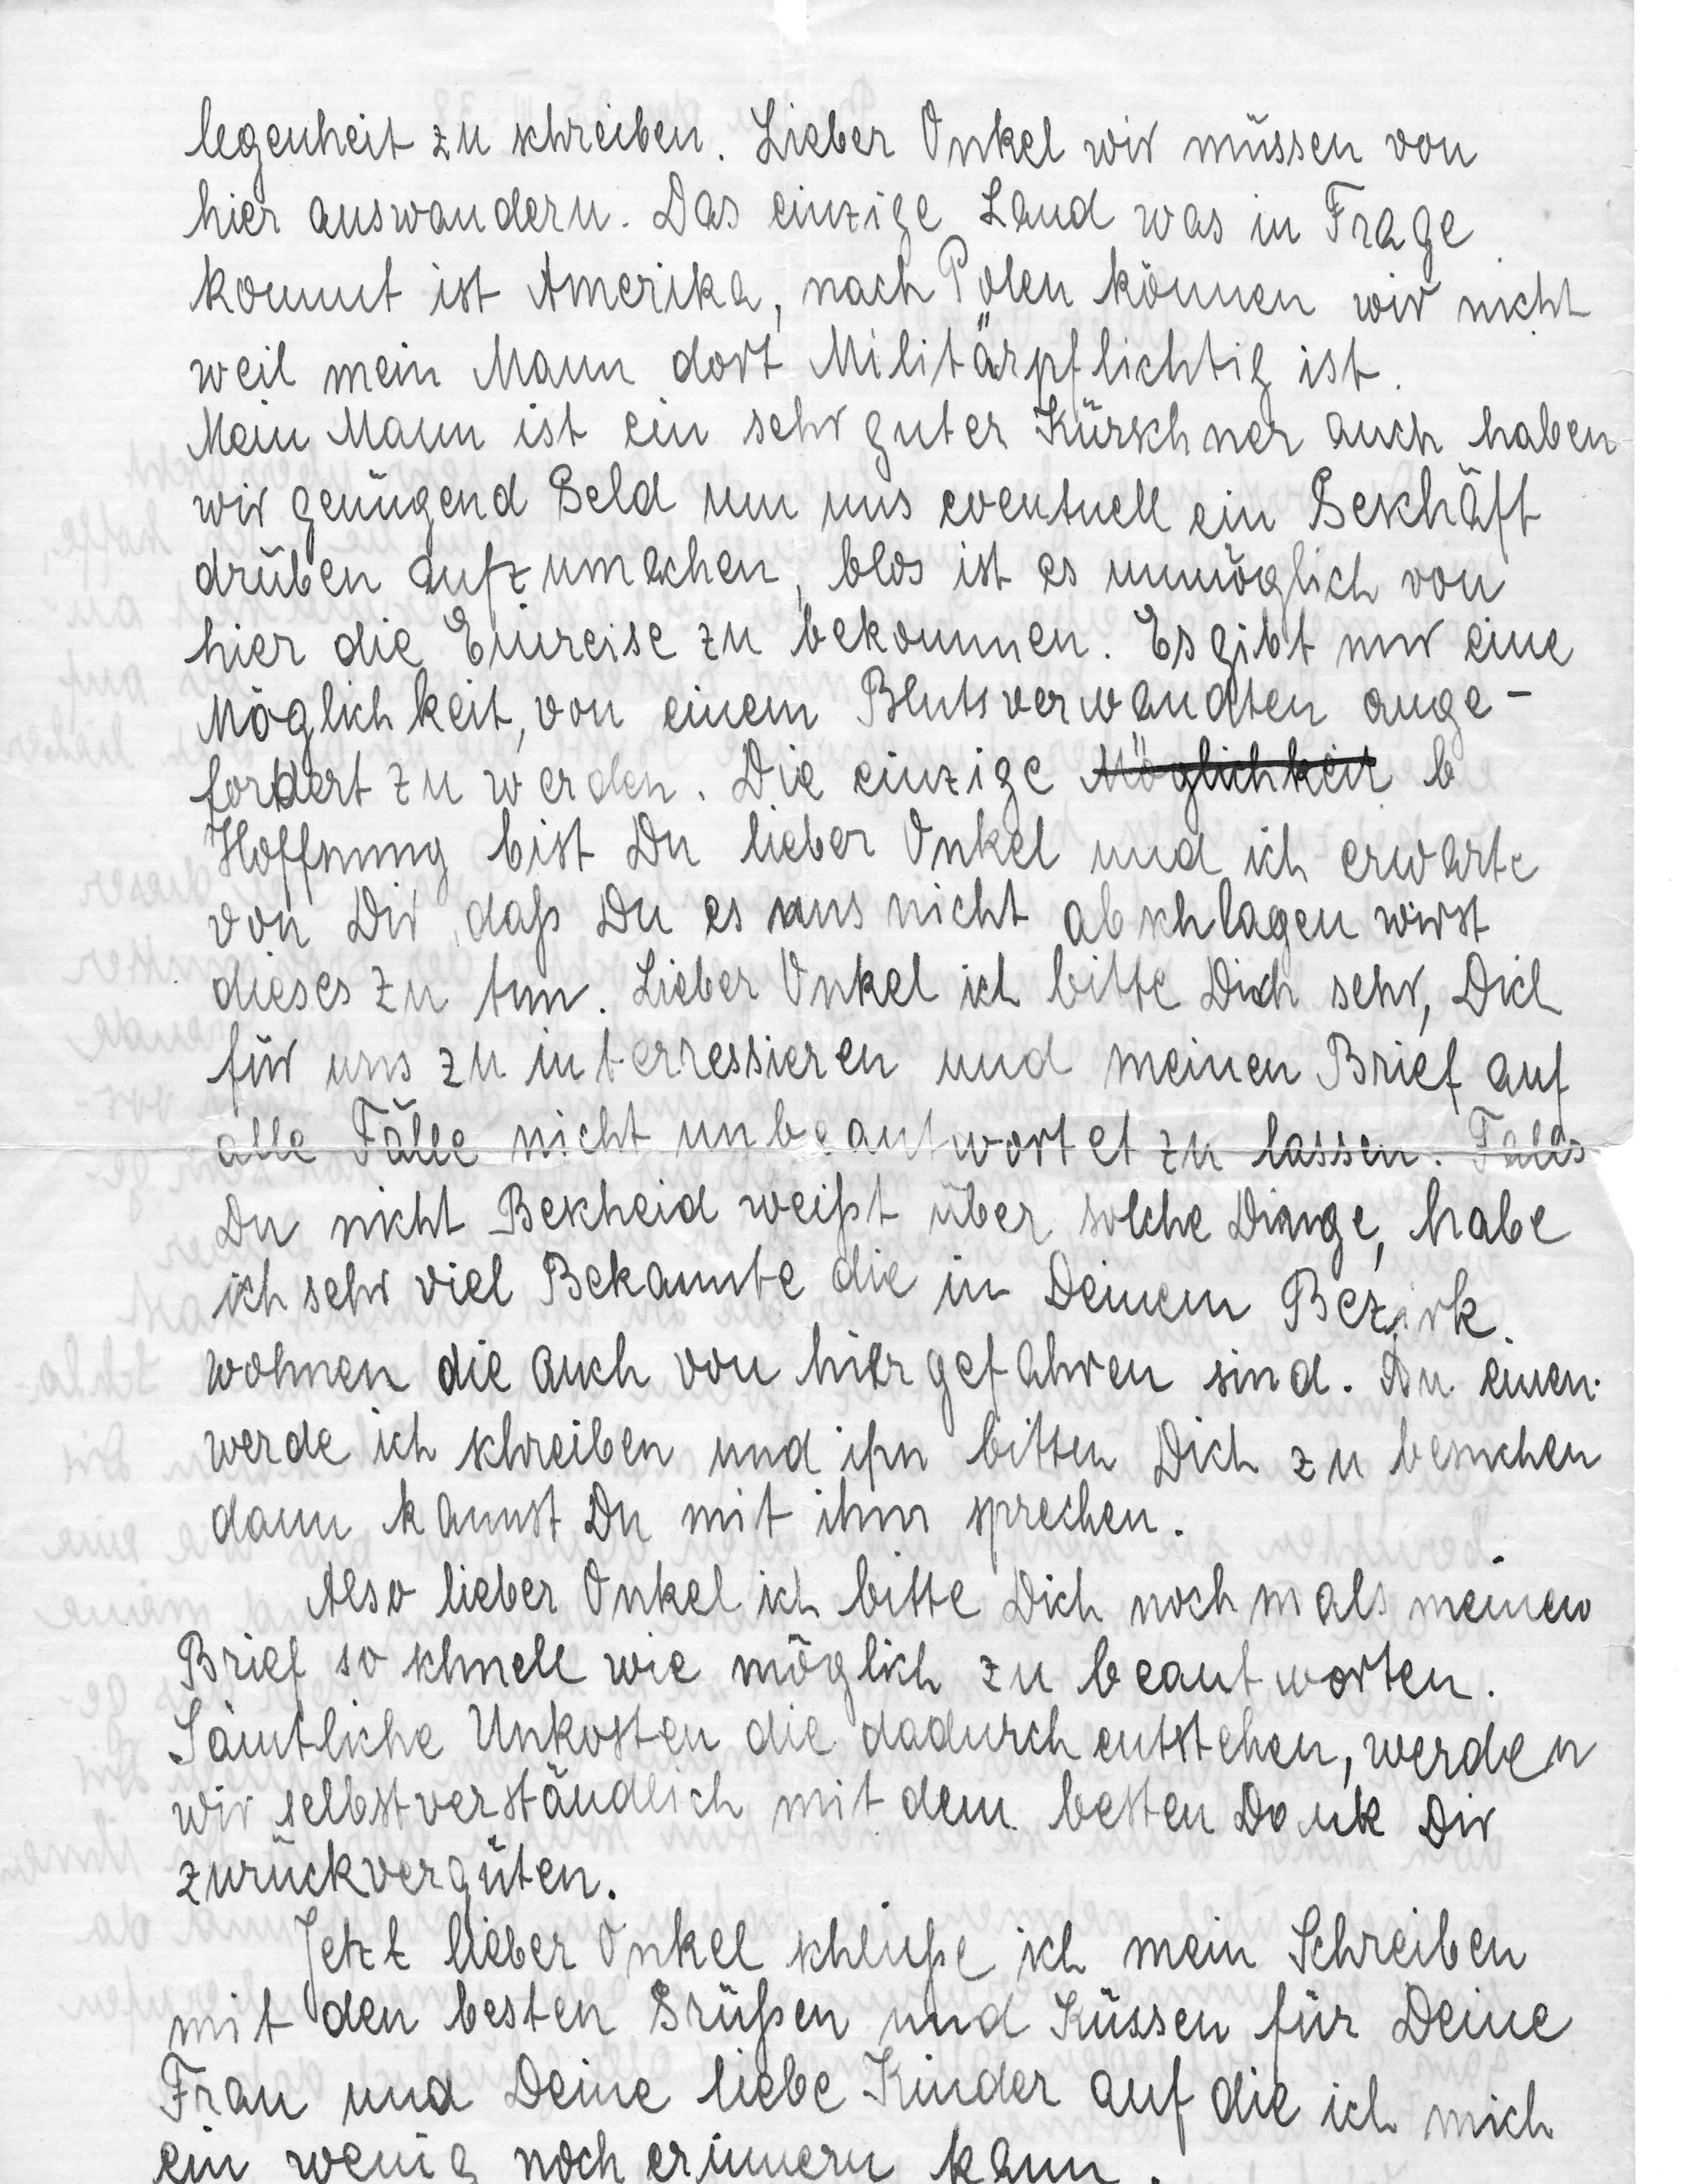 legenheit zu schreiben. Lieber Onkel wir müssen von
hier auswandern. Das einzige Land was in Frage
kommt ist Amerika, nach Polen können wir nicht
weil mein Mann dort Militärpflichtig ist.
Mein Mann ist ein sehr guter Kürschner auch haben
wir genügend Geld um uns eventuell ein Geschäft
drüben aufzumachen, blos ist es unmöglich von
hier die Einreise zu bekommen. Es gibt nur eine
Möglichkeit, von einem Blutsverwandten ange-
fordert zu werden. Die einzige Möglichkeit b
Hoffnung bist Du lieber Onkel und ich erwarte
von Dir, daß Du es uns nicht abschlagen wirst
dieses zu tun. Lieber Onkel ich bitte Dich sehr, Dich
für uns zu interressieren und meinen Brief auf
alle Fälle nicht unbeantwortet zu lassen. Falls
Du nicht Bescheid weißt über solche Dinge, habe
ich sehr viel Bekannte die in Deinem Bezirk
wohnen die auch von hier gefahren sind. An einen
werde ich schreiben und ihn bitten Dich zu besuchen
dann kannst Du mit ihm sprechen.
Also lieber Onkel ich bitte Dich nochmals meinen
Brief so schnell wie möglich zu beantworten.
Sämtliche Unkosten die dadurch entstehen, werden
wir selbstverständlich mit dem besten Dank Dir
zurückvergüten.
Jetzt lieber Onkel schließe ich mein Schreiben
mit den besten Grüßen und Küssen für Deine
Frau und Deine liebe Kinder auf die ich mich
ein wenig noch erinnern kann.